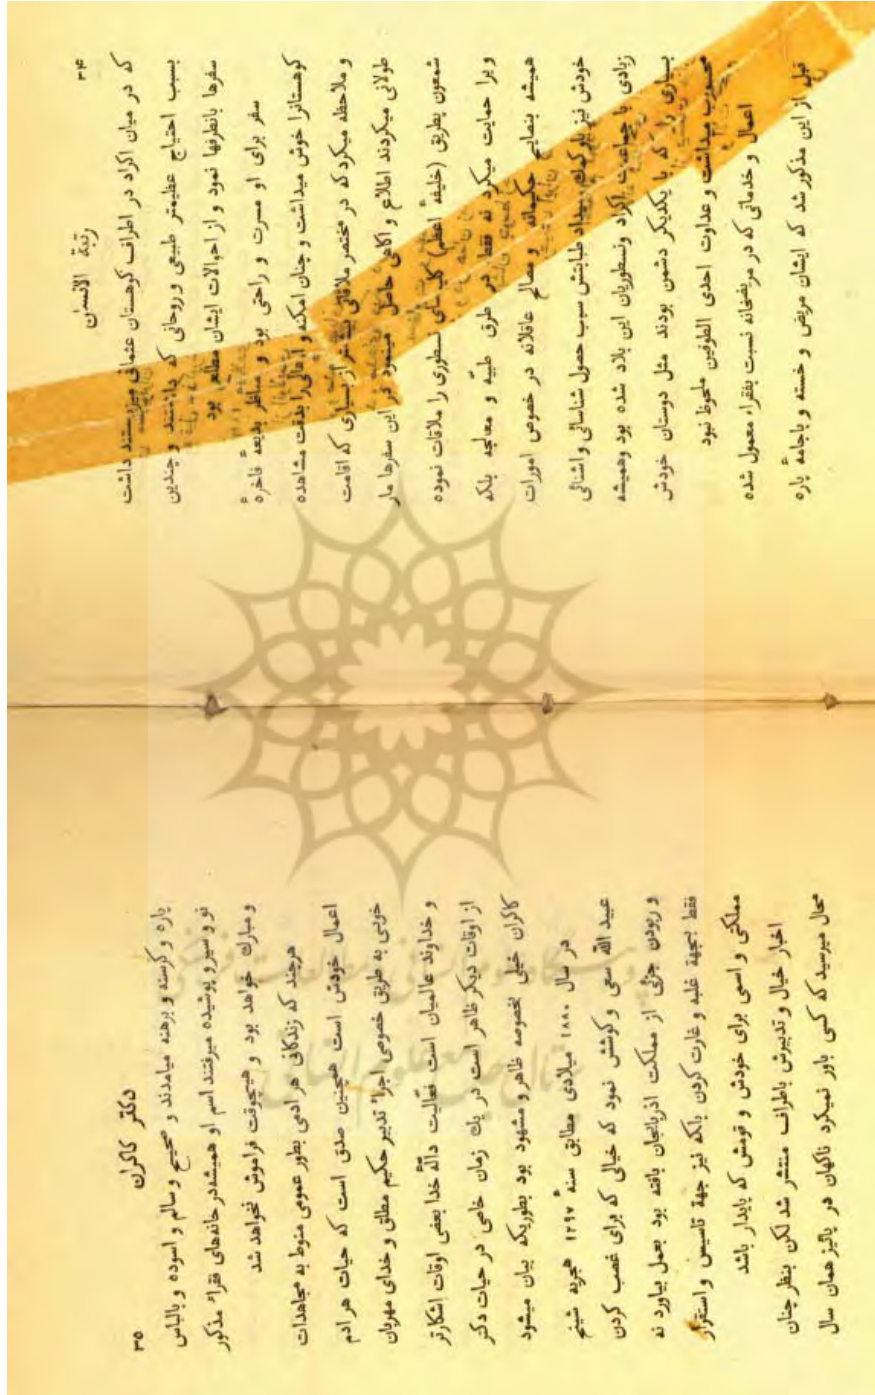 ۳۴
رتبة الانسان
که در میان اکراد در اطراف کوهستان عثمانی میزیستند داشت
بسبب احتیاج عظیمتر طبیعی و روحانی که داشتند و چندین
سفرها بانطرفها نمود و از احوالات ایشان مطلع بود
سفر برای او مسرت و راحتی بود و مناظر بدیعهٔ فاخرهٔ
کوهستانرا خوش میداشت و چنان امکنه و اهالی را بدقت مشاهده
و ملاحظه میکرد که در مختصر ملاقاتی بیشتر از بسیاری که اقامت
طولانی میکردند اطلاع و اکاهی حاصل مینمود در این سفرها مار
شمعون بطریق (خلیفهٔ اعظم) کلیسای نسطوری را ملاقات نموده
ویرا حمایت میکرد نه فقط در طرق طبیّه و معالجه بلکه
همیشه بنصایح حکیمانه ومصالح عاقلانه در خصوص امورات
خودش نیز باو کمک میداد طبابتش سبب حصول شناسائی و اشنائی
زیادی با جماعت اکراد ونسطوریان این بلاد شده بود وهمیشه
بسیاری را که با یکدیکر دشمن بودند مثل دوستان خودش
محسوب میداشت و عداوت احدی الطرفین ملحوظ نبود
اعمال و خدماتی که در مریضخانه نسبت بفقراء معمول شده
قبل از این مذکور شد که ایشان مریض و خسته و باجامهٔ پاره
۳۵
دکتر کاکران
پاره و کرسنه و برهنه میامدند و صحیح وسالم و اسوده و بالباس
نو و سیر و پوشیده میرفتند اسم او همیشه در خانه‌های فقراء مذکور
و مبارك خواهد بود و هیچوقت فراموش نخواهد شد
هرچند که زندکانی هر ادمی بطور عمومی منوط به مجاهدات
اعمال خودش است همچنین صدق است که حیات هر ادم
خوبی به طریق خصوصی اجراء تدبیر حکیم مطلق و خدای مهربان
و خداوند عالمیان است فعّالیت دائمهٔ خدا بعضی اوقات اشکارتر
از اوقات دیکر ظاهر است در یك زمان خاصی در حیات دکتر
کاکران خیلی بخصوصه ظاهر و مشهود بود بطوریکه بیان میشود
در سال ۱۸۸۰ میلادی مطابق سنهٔ ۱۲۹۷ هجریه شیخ
عبید الله سعی و کوشش نمود که خیالی که برای غصب کردن
و ربودن جزئی از مملکت اذربائجان بافته بود بعمل بیاورد نه
فقط بجهة غلبه و غارت کردن بلکه نیز جهة تاسیس و استقرار
مملکتی و اسمی برای خودش و قومش که پایدار باشد
اخبار خیال و تدبیرش باطراف منتشر شد لکن بنظر چنان
محال میرسید که کسی باور نمیکرد ناکهان در پائیز همان سال